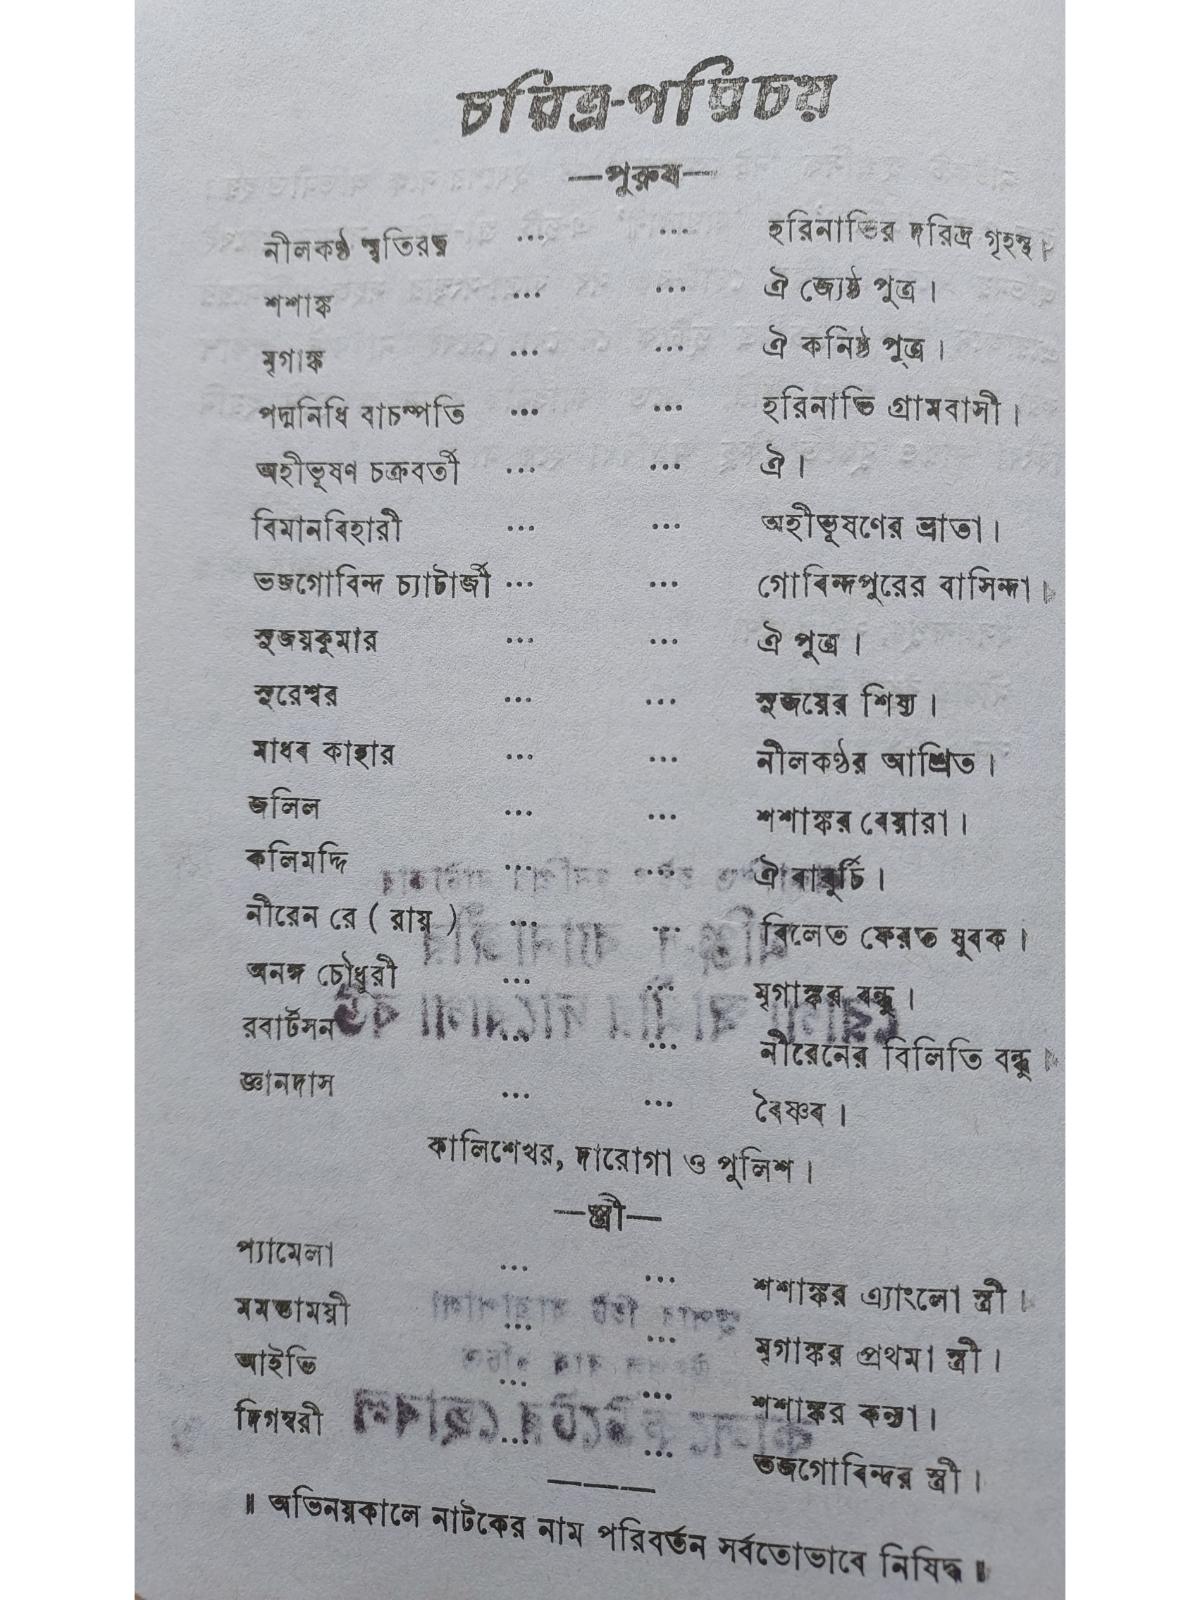 চরিত্র-পরিচয়
—পুরুষ—
নীলকণ্ঠ স্মৃতিরত্ন ... ... হরিনাভির দরিদ্র গৃহস্থ।
শশাঙ্ক ... ... ঐ জ্যেষ্ঠ পুত্র।
মৃগাঙ্ক ... ... ঐ কনিষ্ঠ পুত্র।
পদ্মনিধি বাচস্পতি ... ... হরিনাভি গ্রামবাসী।
অহীভূষণ চক্রবর্তী ... ... ঐ।
বিমানবিহারী ... ... অহীভূষণের ভ্রাতা।
ভজগোবিন্দ চ্যাটার্জী ... ... গোবিন্দপুরের বাসিন্দা।
সুজয়কুমার ... ... ঐ পুত্র।
সুরেশ্বর ... ... সুজয়ের শিষ্য।
মাধব কাহার ... ... নীলকণ্ঠর আশ্রিত।
জলিল ... ... শশাঙ্কর বেয়ারা।
কলিমদ্দি ... ... ঐ বাবুর্চি।
নীরেন রে ( রায় ) ... ... বিলেত ফেরত যুবক।
অনঙ্গ চৌধুরী ... ... মৃগাঙ্কর বন্ধু।
রবার্টসন ... ... নীরেনের বিলিতি বন্ধু।
জ্ঞানদাস ... ... বৈষ্ণব।
কালিশেখর, দারোগা ও পুলিশ।
—স্ত্রী—
প্যামেলা ... ... শশাঙ্কর এ্যাংলো স্ত্রী।
মমতাময়ী ... ... মৃগাঙ্কর প্রথমা স্ত্রী।
আইভি ... ... শশাঙ্কর কন্যা।
দিগম্বরী ... ... ভজগোবিন্দর স্ত্রী।
॥ অভিনয়কালে নাটকের নাম পরিবর্তন সর্বতোভাবে নিষিদ্ধ ॥